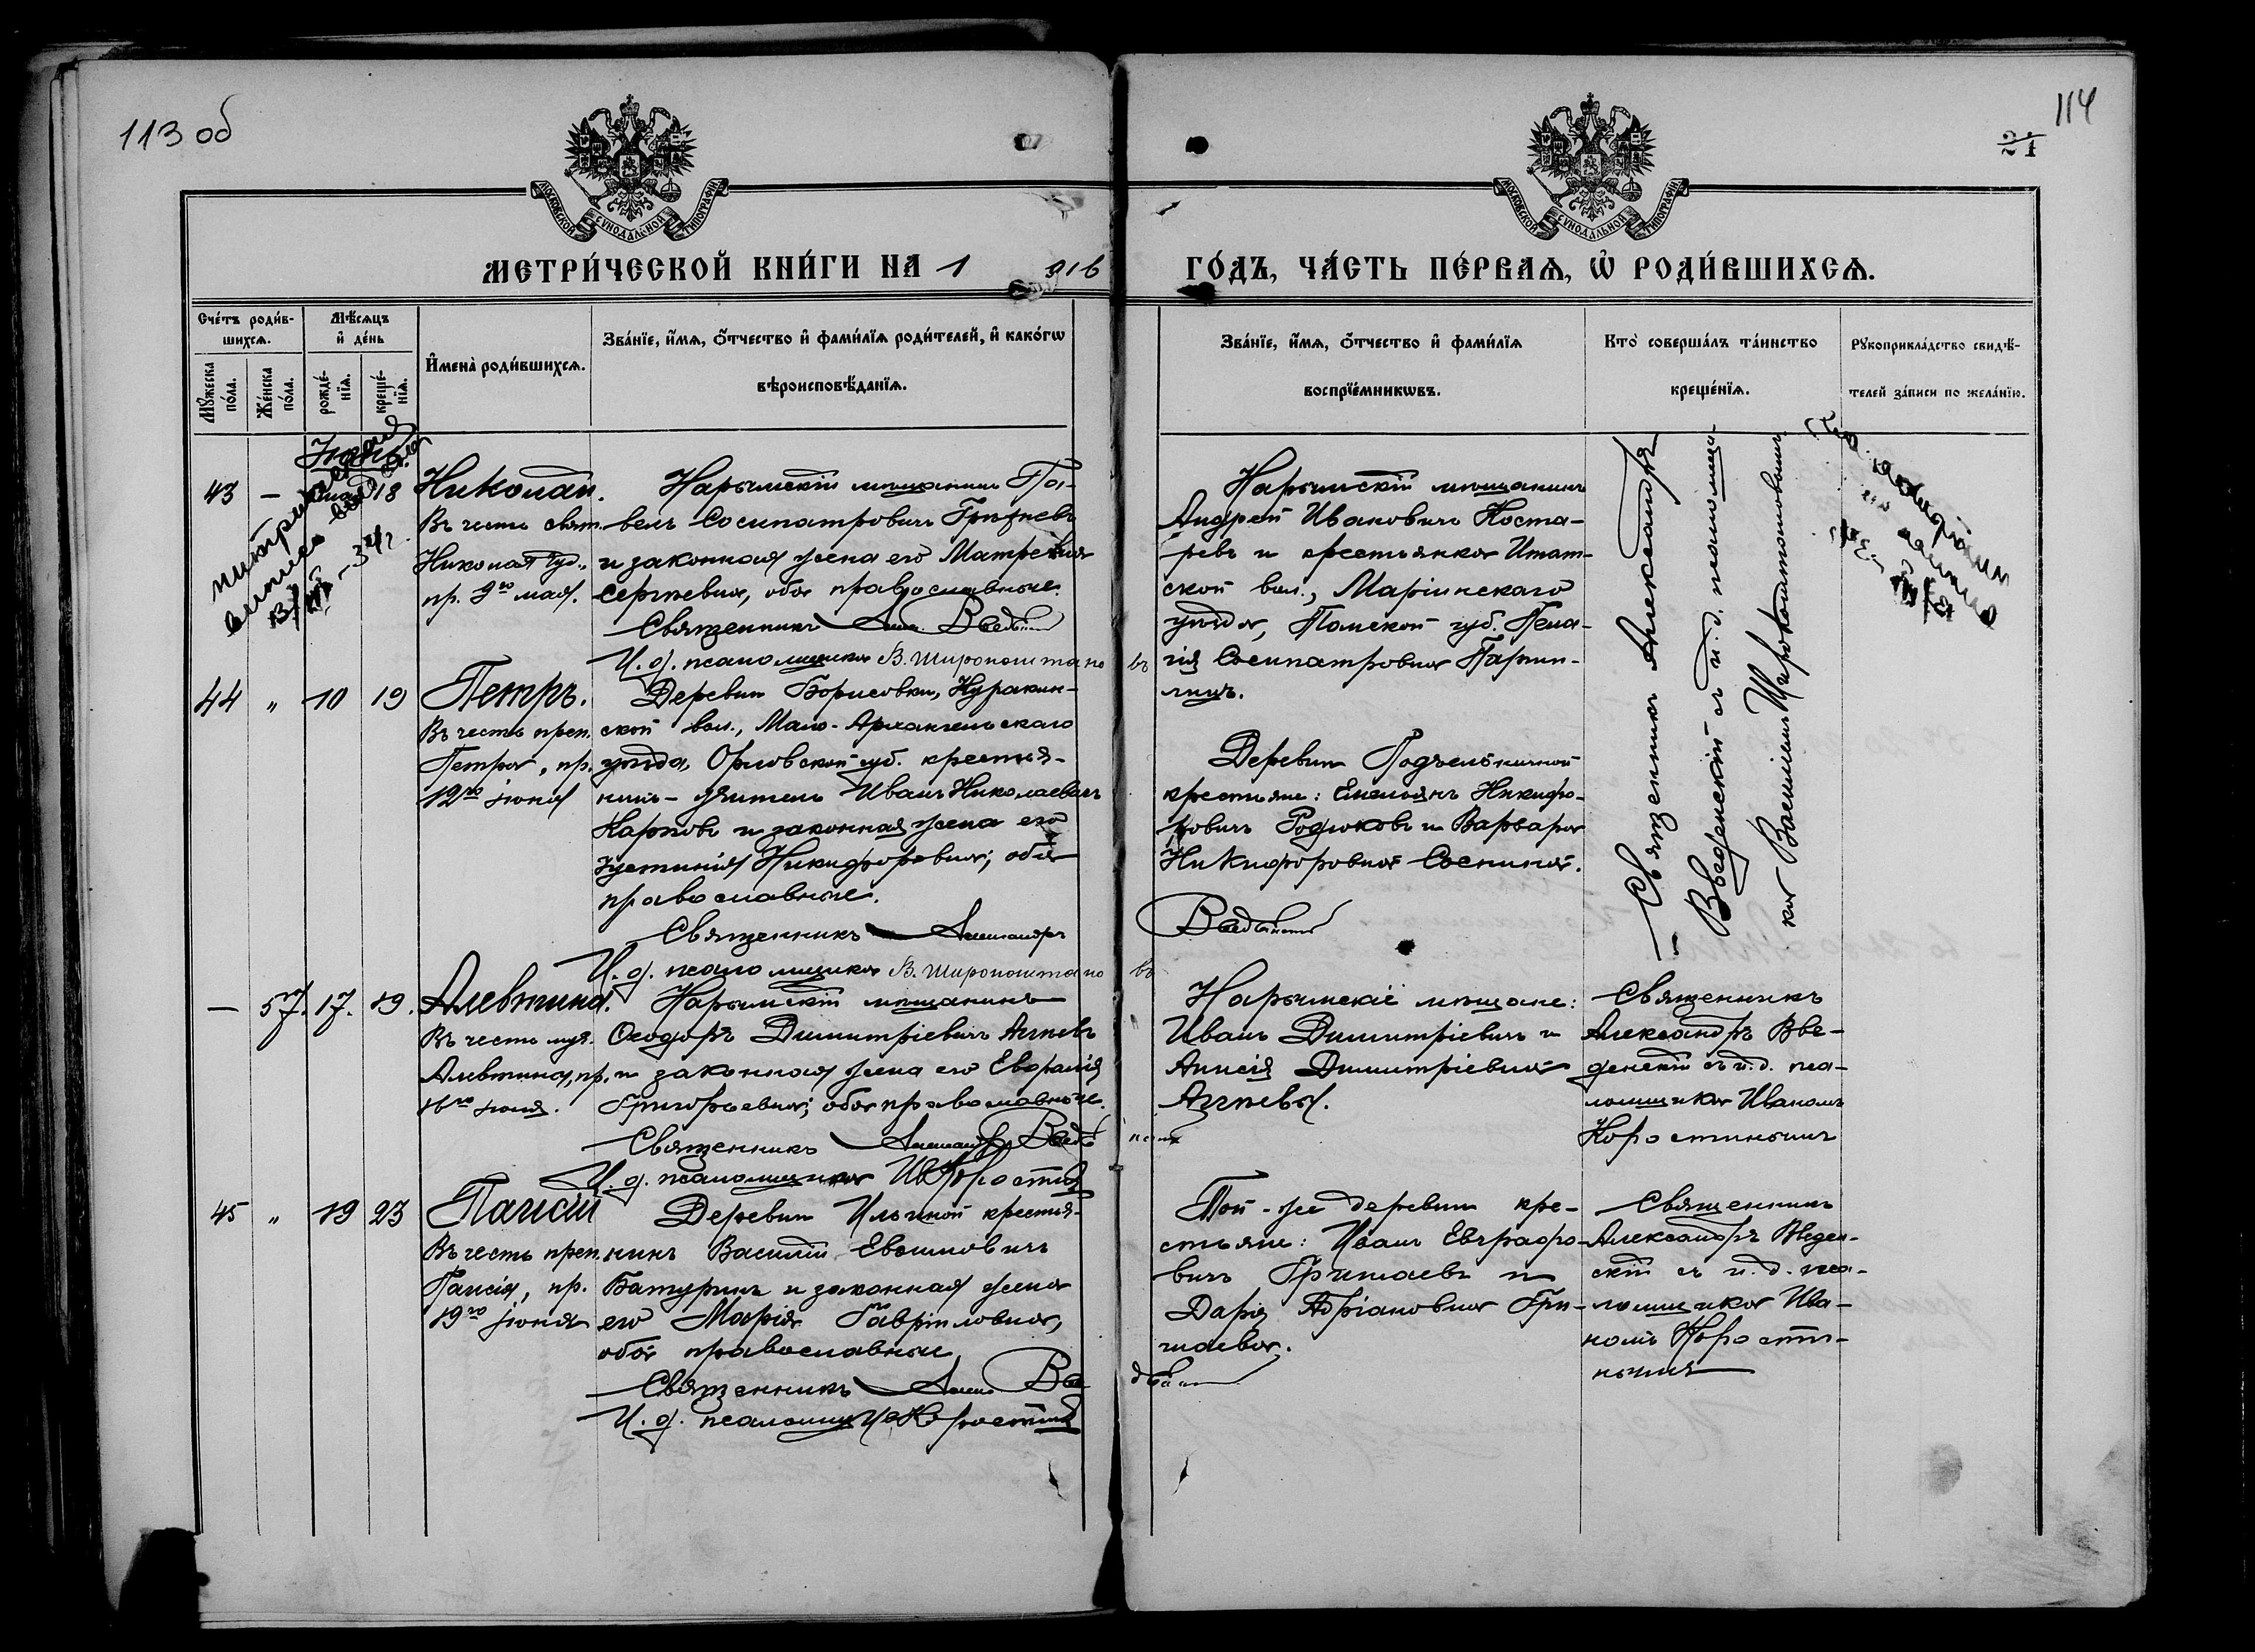 113 об
114
21
МОСКОВСКОЙ СѴНОДАЛЬНОЙ ТИПОГРАФІИ
МОСКОВСКОЙ СѴНОДАЛЬНОЙ ТИПОГРАФІИ
МЕТРИ́ЧЕСКОЙ КНИ́ГИ НА 1 916
ГО́ДЪ, ЧА́СТЬ ПЕ́РВАѦ, Ѽ РОДИ́ВШИХСѦ.
Сче́тъ роди́в-
шихсѧ.
Мꙋ́жеска по́ла.
Же́нска по́ла.
Мѣ́сѧцъ и҆ де́нь
рожде́-
нїѧ.
креще́-
нїѧ.
И҆мена̀ роди́вшихсѧ.
Зва́нїе, и҆́мѧ, ѻ҆́тчество и҆ фами́лїѧ роди́телей, и҆ како́гѡ
вѣроисповѣ́данїѧ.
Зва́нїе, и҆́мѧ, ѻ҆́тчество и҆ фами́лїѧ
воспрїе́мникѡвъ.
Кто̀ соверша́лъ та́инство
креще́нїѧ.
Рꙋкоприкла́дство свидѣ́-
телей за́писи по жела́нїю.
Іюнь.
43 — 18 Николай.
Въ честь свят.
Николая Чуд.,
пр. 9го мая.
Нарымскій мѣщанинъ Па-
велъ Сосипатровичъ
и законная жена его Матрена
Сергѣевна, оба православные.
Священникъ
И. д. псаломщика В. Широкоштановъ
Нарымскій мѣщанинъ
Андрей Ивановичъ Коста-
ревъ и крестьянка Итат-
ской вол., Маріинскаго
уѣзда, Томской губ. Пела-
гія Сосипатровна
Священникъ Александръ
Введенскій съ и. д. псаломщи-
ка Василіемъ Широкоштановымъ
44 " 10 19 Петръ.
Въ честь преп.
Петра, пр.
12го іюня
Деревни Борисовки, Куракин-
ской вол., Мало-Архангельскаго
уѣзда, Орловской губ. крестья-
нинъ – учитель Иванъ Николаевичъ
Карповъ и законная жена его
Устинія Никифоровна; оба
православные.
Священникъ Александръ Введенскій
И. д. псаломщика В. Широкоштановъ
Деревни Подъельничной
крестьяне: Емельянъ Никифо-
ровичъ Родюковъ и Варвара
Никифоровна Соснина.
— 57. 17. 19. Алевтина.
Въ честь муч.
Алевтины, пр.
16го іюля.
Нарымскій мѣщанинъ
Ѳеодоръ Димитріевичъ Агѣевъ
и законная жена его Евфалія
Григорьевна; оба православные.
Священникъ Александръ Введенскій
И. д. псаломщика Ив. Коростинъ
Нарымскіе мѣщане:
Иванъ Димитріевичъ и
Анисія Димитріевна
Агѣевы.
Священникъ
Александръ Вве-
денскій съ и. д. пса-
ломщика Иваномъ
Коростинымъ
45 " 19 23 Паисій
Въ честь преп.
Паисія, пр.
19го іюня
Деревни Ильиной крестья-
нинъ Василій Евфимовичъ
Батуринъ и законная жена
его Марія Гавриловна,
оба православные
Священникъ
И. д. псаломщ. Ив. Коростинъ
Той-же деревни кре-
стьяне: Иванъ Евграфо-
вичъ Гришаевъ и
Дарія Адріановна Гри-
шаева.
Священникъ
Александръ Введен-
скій съ и. д. пса-
ломщика Ива-
номъ Корости-
нымъ